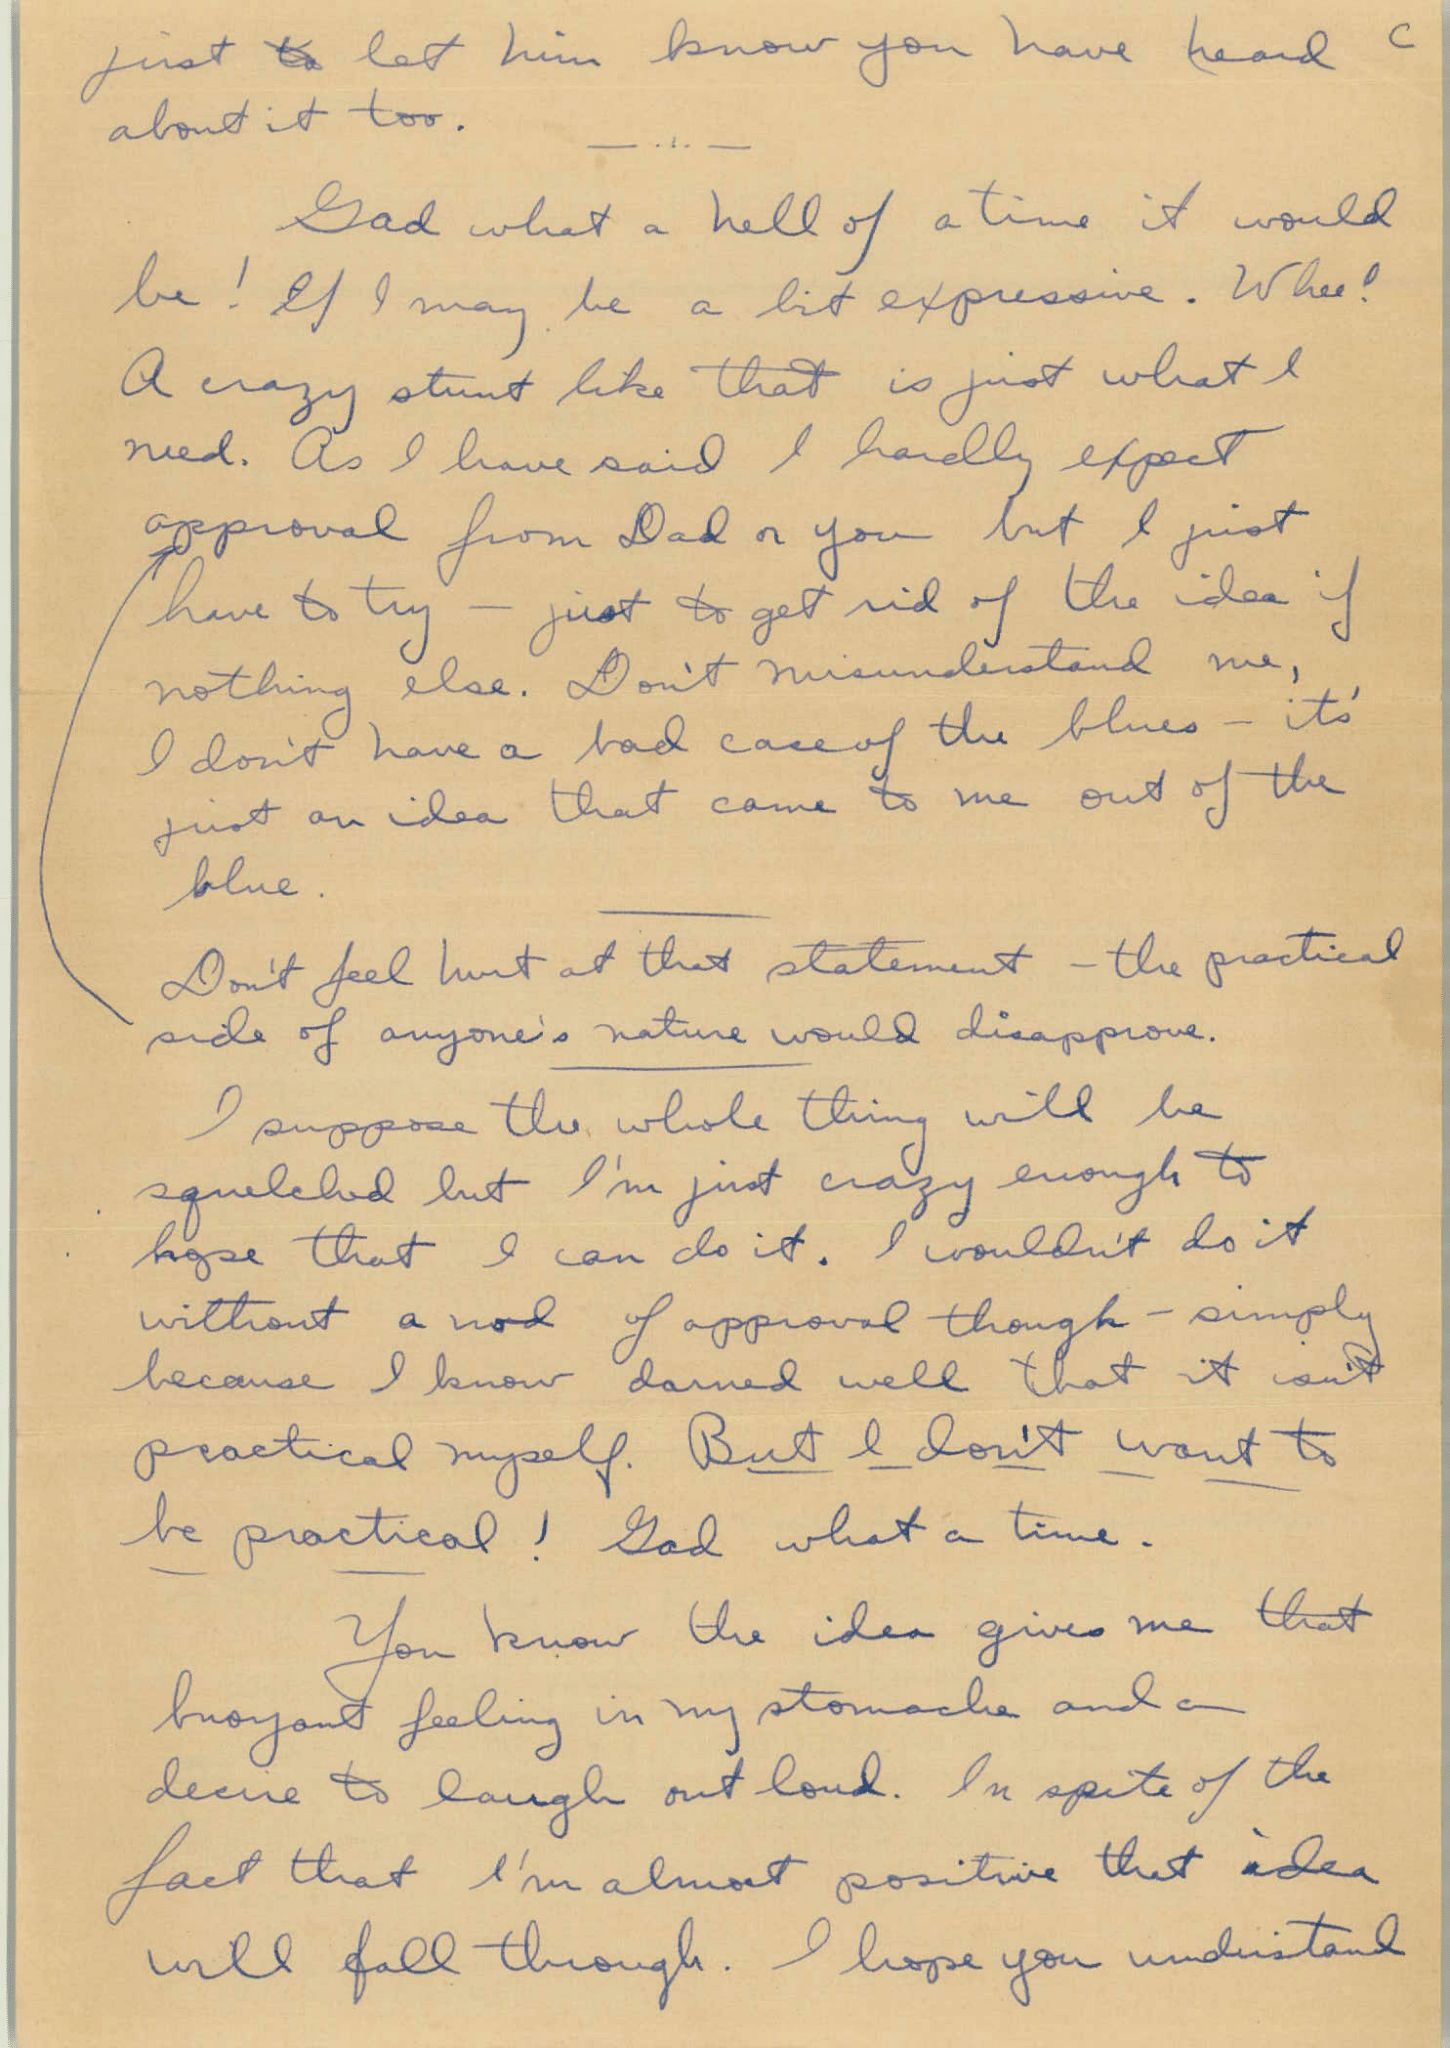 just to let him know you have heard C
about it too.
— ... —
Gad what a hell of a time it would
be! If I may be a bit expressive. Whee!
A crazy stunt like that is just what I
need. As I have said I hardly expect
approval from Dad or you but I just
have to try – just to get rid of the idea if
nothing else. Don't misunderstand me,
I don't have a bad case of the blues – it's
just an idea that came to me out of the
blue.
Don't feel hurt at that statement – the practical
side of anyone's nature would disapprove.
I suppose the whole thing will be
squelched but I'm just crazy enough to
hope that I can do it. I wouldn't do it
without a nod of approval though – simply
because I know darned well that it isn't
practical myself. But I don't want to
be practical! Gad what a time.
You know the idea gives me that
buoyant feeling in my stomache and a
desire to laugh out loud. In spite of the
fact that I'm almost positive that idea
will fall through. I hope you understand